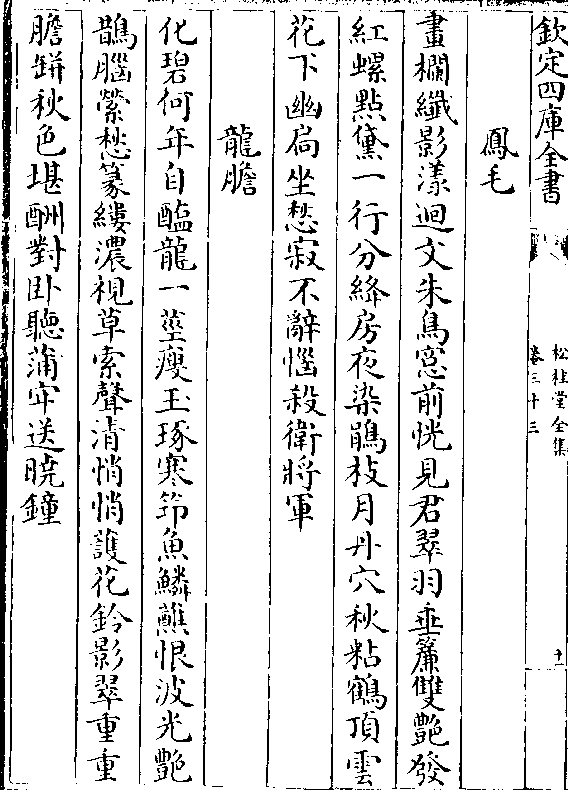 欽定四庫全書
松桂堂全集
卷三十三
十一
鳳毛
畫欄纖影漾迴文朱鳥窓前恍見君翠羽垂簾雙艷發
紅螺點黛一行分絳房夜染鵑枝月丹穴秋粘鶴頂雲
花下幽扃坐愁寂不辭惱殺衛將軍
龍膽
化碧何年自醢龍一莖瘦玉琢寒筇魚鱗蘸恨波光艷
鵲腦縈愁篆縷濃視草索聲清悄悄護花鈴影翠重重
膽缾秋色堪酬對卧聽蒲牢送曉鐘